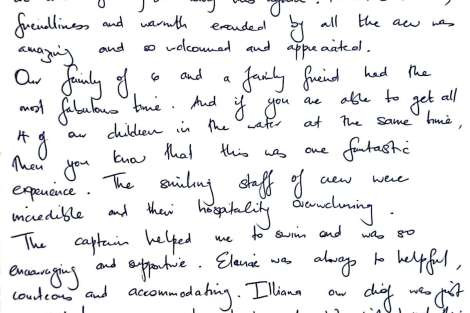 friendliness and warmth exuded by all the crew was
amazing and so welcomed and appreciated.
Our family of 6 and a family friend had the
most fabulous time. And if you are able to get all
4 of our children in the water at the same time,
then you know that this was one fantastic
experience. The smiling staff of crew were
incredible and their hospitality overwhelming.
The captain helped me to swim and was so
encouraging and supportive. was always to helpful,
courteous and accommodating. Illiana our chef was just